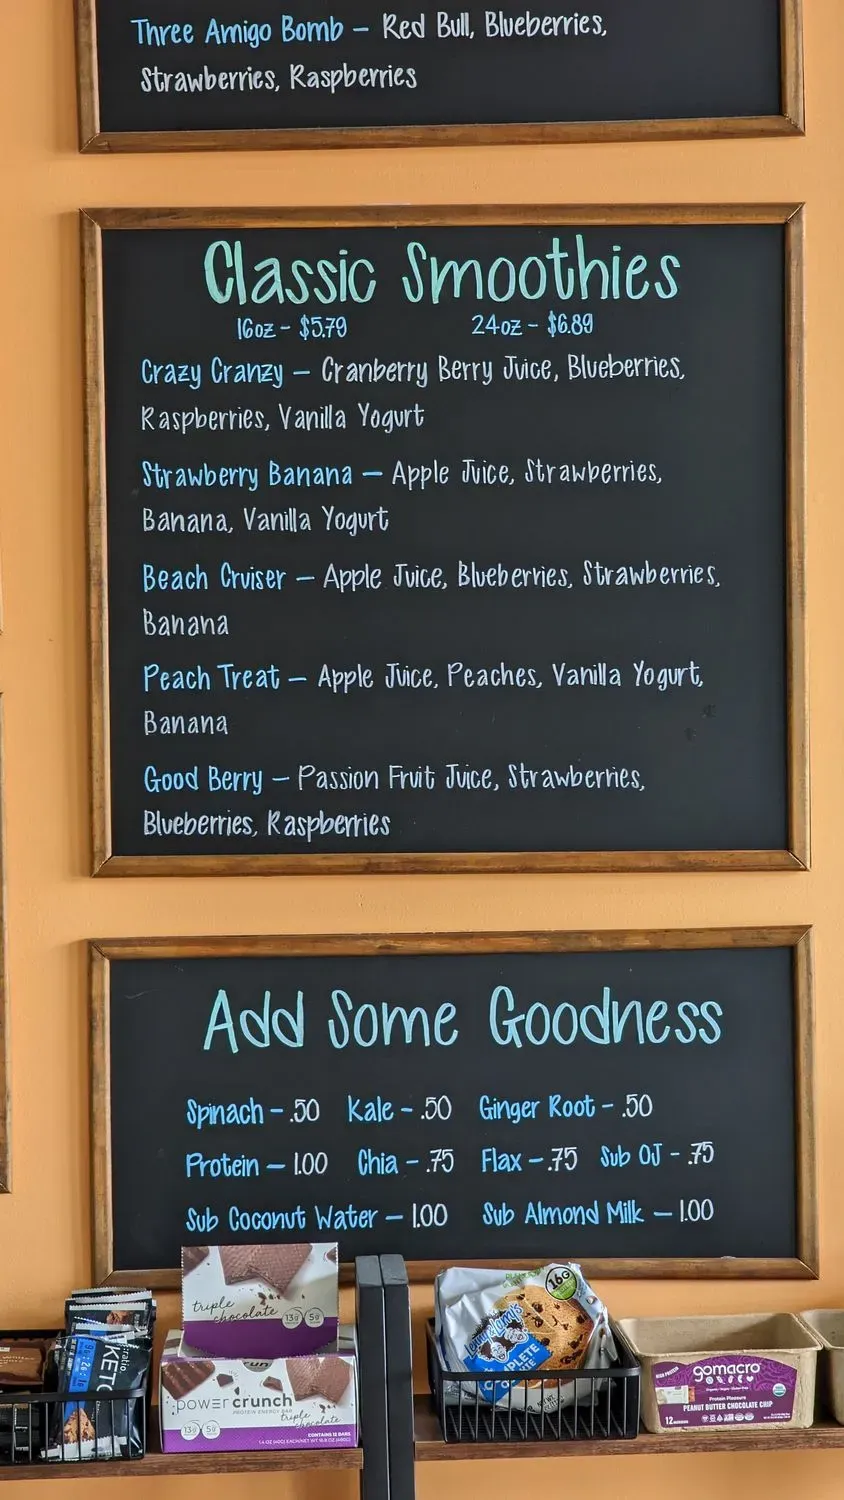 Three Amigo Bomb – Red Bull, Blueberries,
Strawberries, Raspberries
Classic Smoothies
16oz - $5.79 24oz - $6.89
Crazy Cranzy – Cranberry Berry Juice, Blueberries,
Raspberries, Vanilla Yogurt
Strawberry Banana – Apple Juice, Strawberries,
Banana, Vanilla Yogurt
Beach Cruiser – Apple Juice, Blueberries, Strawberries,
Banana
Peach Treat – Apple Juice, Peaches, Vanilla Yogurt,
Banana
Good Berry – Passion Fruit Juice, Strawberries,
Blueberries, Raspberries
Add Some Goodness
Spinach - .50 Kale - .50 Ginger Root - .50
Protein – 1.00 Chia - .75 Flax - .75 Sub OJ - .75
Sub Coconut Water – 1.00 Sub Almond Milk – 1.00
triple
chocolate
13g 5g
power crunch
PROTEIN ENERGY BAR
triple
chocolate
13g 5g
CONTAINS 12 BARS
:ratio
KETO
Lenny & Larry's
16G
gomacro
Protein Pleasure
PEANUT BUTTER CHOCOLATE CHIP
12